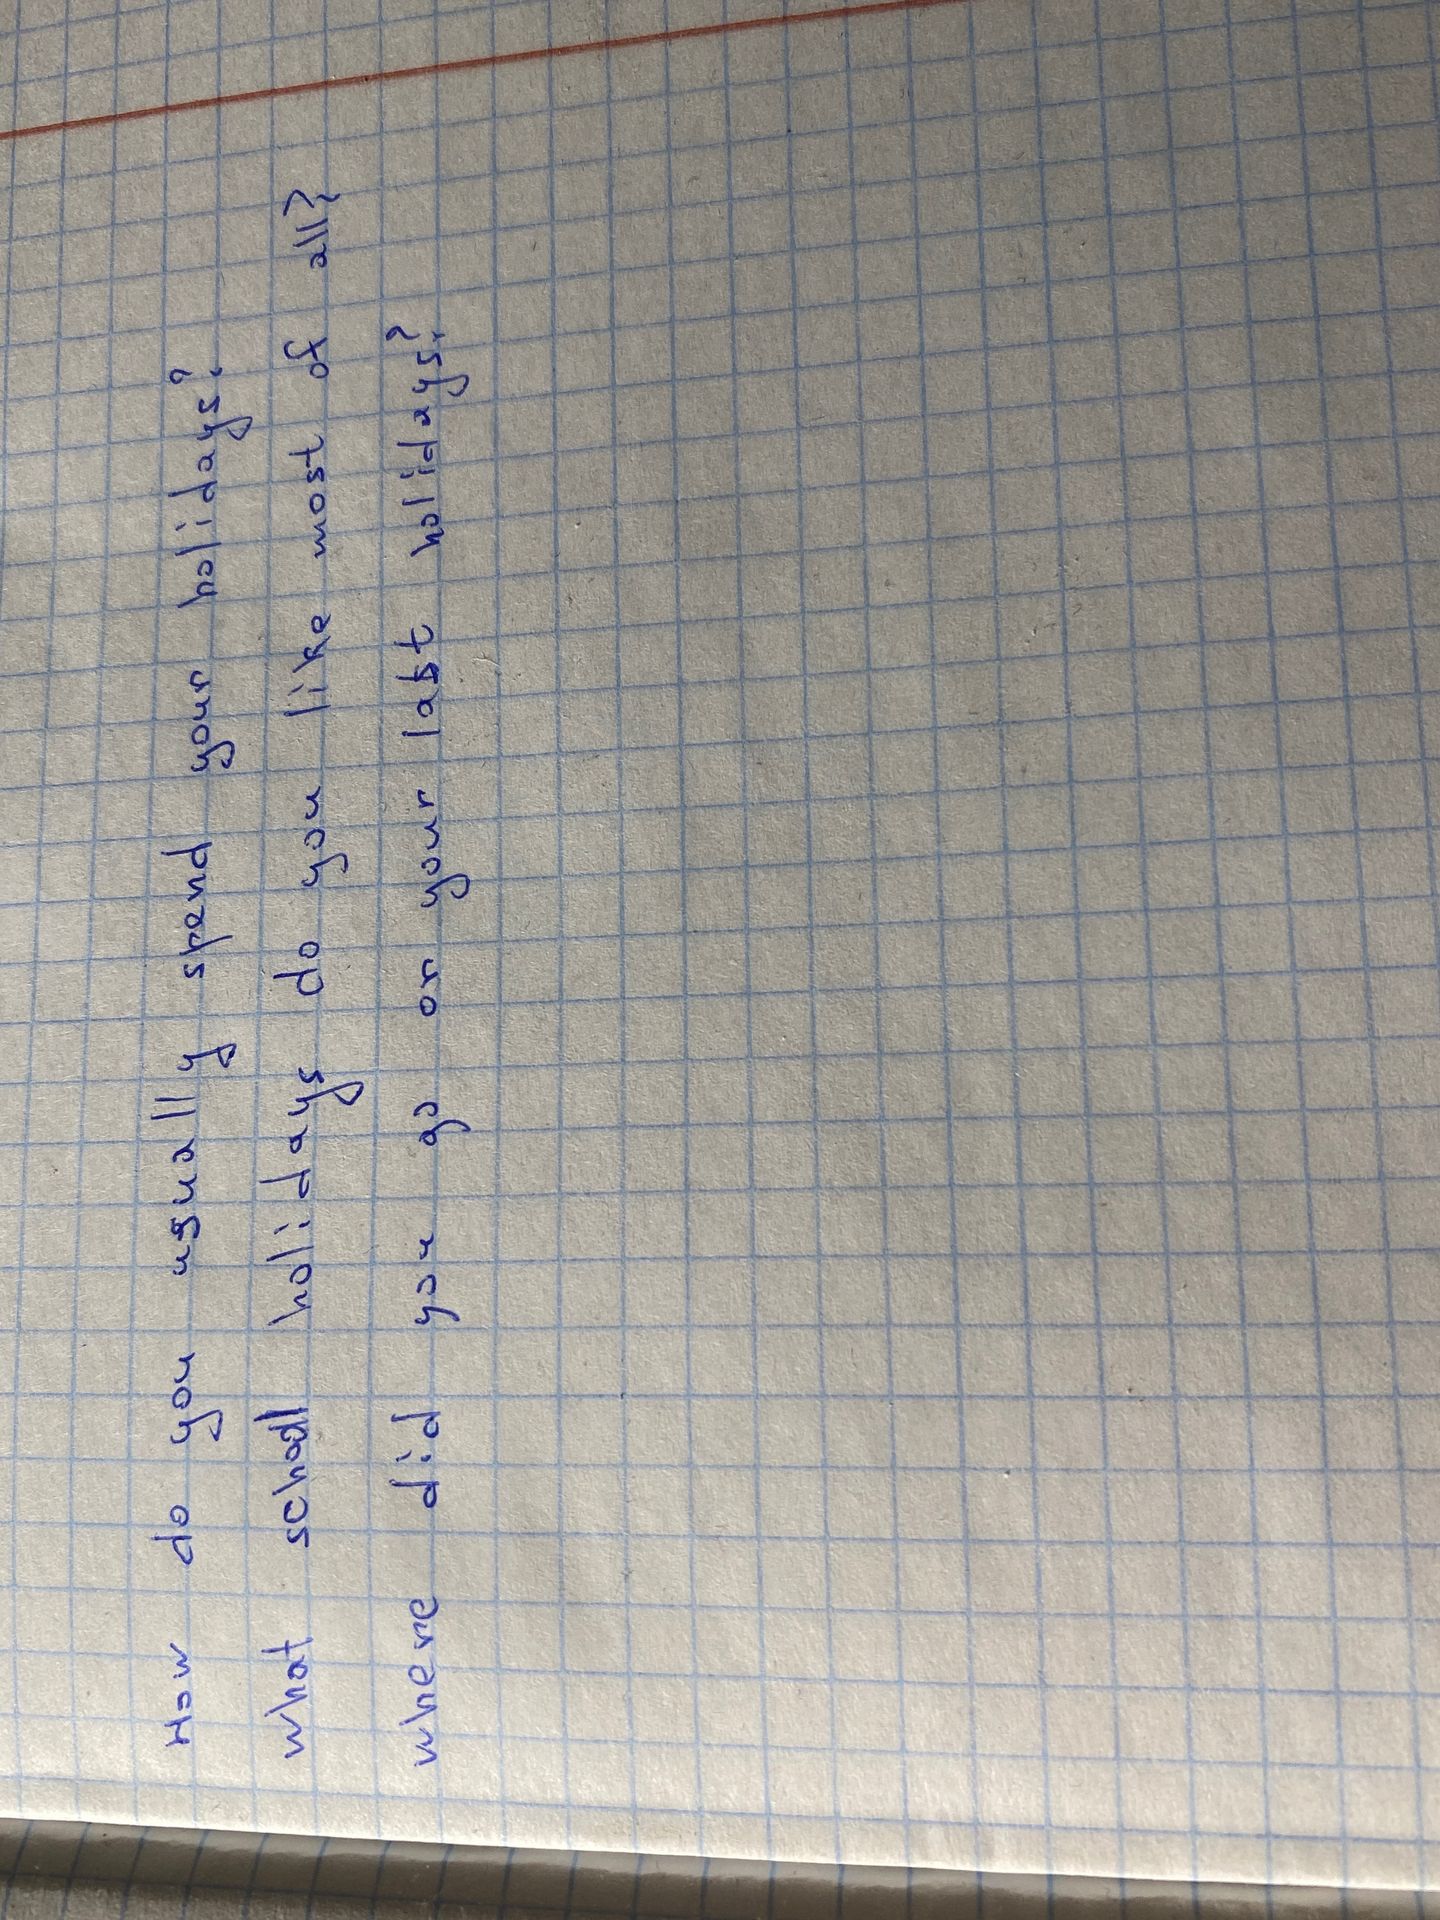 How do you usually spend your holidays?
what school holidays do you like most of all?
where did you go on your last holidays?